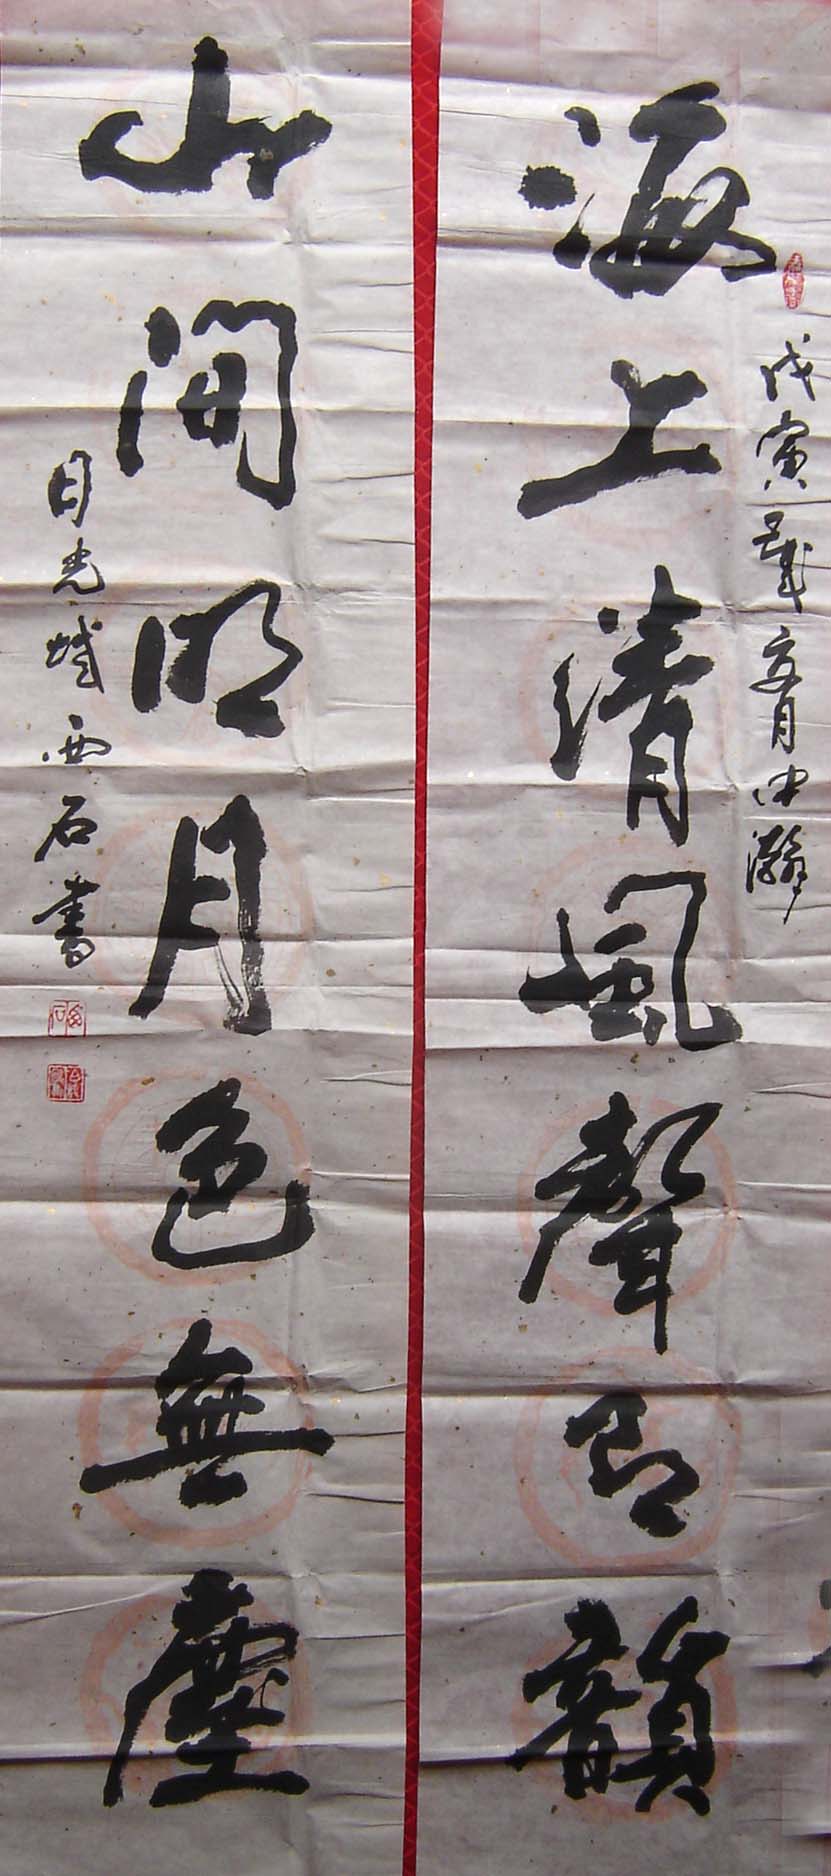 戊寅歲亥月中瀚
海上清風聲韻
山間明月色無塵
日光城西石書